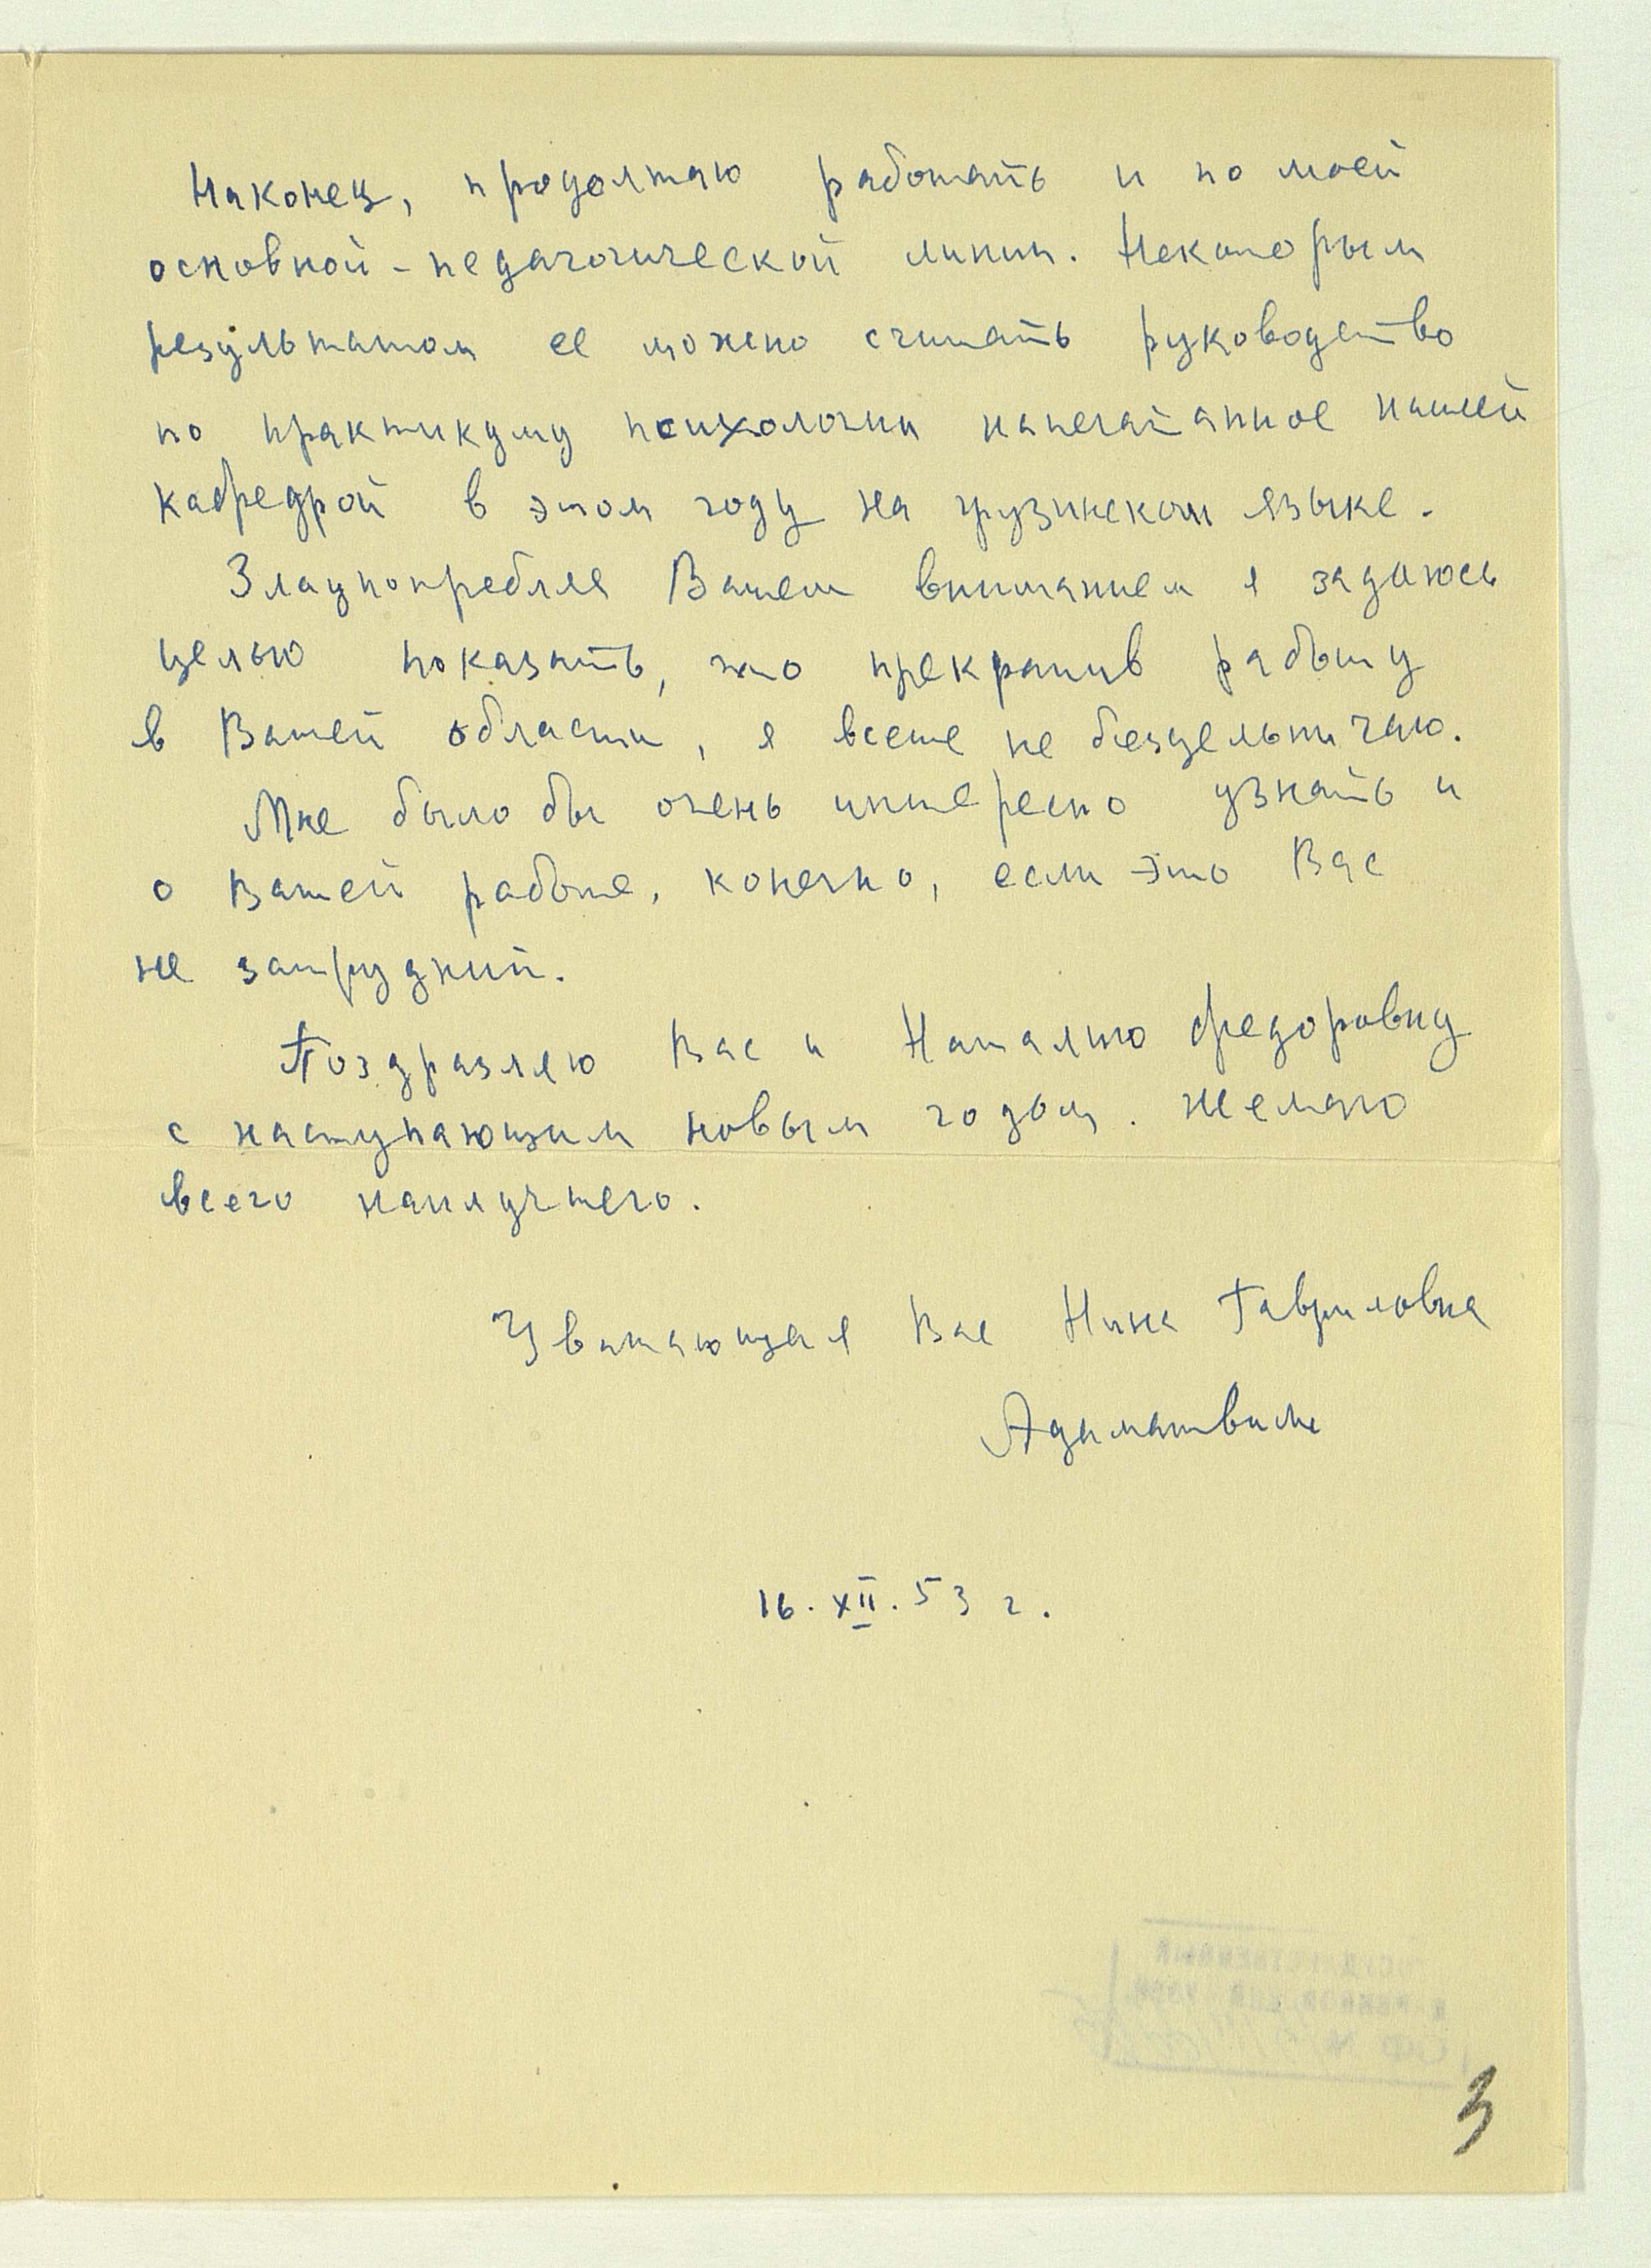 Наконец, продолжаю работать и по моей
основной - педагогической линии. Некоторым
результатом ее можно считать руководство
по практикуму психологии напечатанное нашей
кафедрой в этом году на грузинском языке.
Злаупотребляя Вашем вниманием я задаюсь
целью показать, что прекратив работу
в Вашей области, я всеже не бездельничаю.
Мне было бы очень интересно узнать и
о Вашей работе, конечно, если это Вас
не затруднит.
Поздравляю Вас и Наталию Федоровну
с наступающим новым годом. Желаю
всего наилучшего.
Уважающая Вас Нина Гавриловна
Адамашвили
16. XII. 53 г.
3